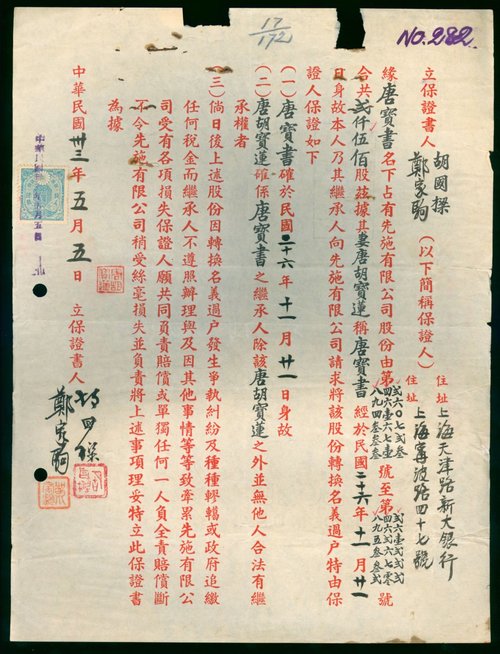 NO.282.
17/172
立保證書人 胡國樑 鄭家駒 (以下簡稱保證人) 住址 上海天津路新大銀行 住址 上海寧波路四十七號
緣唐寶書名下占有先施有限公司股份由第 號至第 號
合共弍仟伍佰股茲據其妻唐胡寶蓮稱唐寶書經於民國二十六年十一月廿一
日身故本人乃其繼承人向先施有限公司請求將該股份轉換名義過户特由保
證人保證如下
(一) 唐寶書確於民國二十六年十一月廿一日身故
(二) 唐胡寶蓮確係唐寶書之繼承人除該唐胡寶蓮之外並無他人合法有繼
承權者
(三) 倘日後上述股份因轉換名義過户發生爭執糾紛及種種轇轕或政府追繳
任何税金而繼承人不遵照辦理與及因其他事情等等致牽累先施有限公
司受有各項損失保證人願共同員責賠償或單獨任何一人負全責賠償斷
不令先施有限公司稍受絲毫損失並負責將上述事項理妥特立此保證書
為據
中華民國卅三年五月五日 立保證書人 胡國樑
鄭家駒